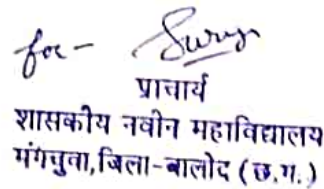 for -
प्राचार्य
शासकीय नवीन महाविद्यालय
मंगचुवा, जिला-बालोद (छ.ग.)